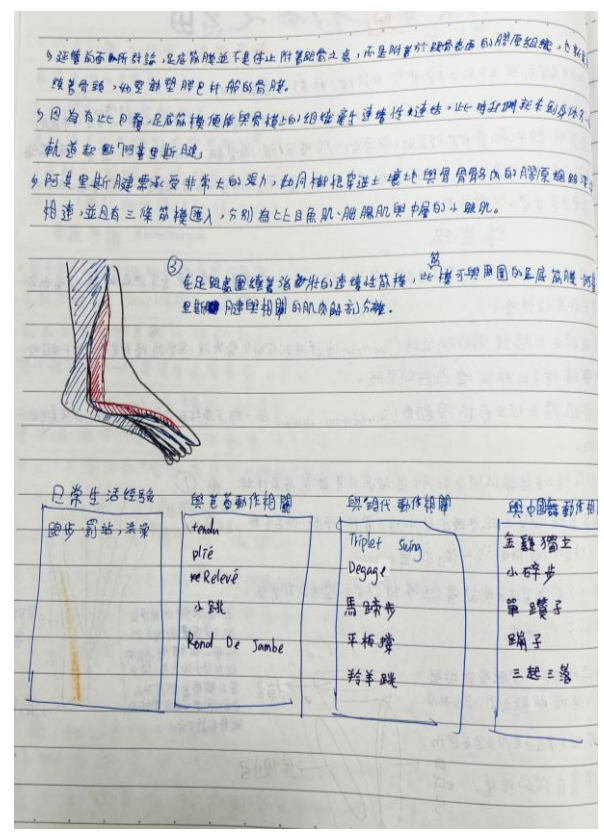 延續前面所討論,足底筋膜並不是停止附著跟骨之處,而是附著於跟骨表面的膠原組織,也
繞著骨頭,如堅韌塑膠包材般的骨膜。
因為有此包膜,足底筋膜便能與骨模上的組織產生連續性連結。此時我們就來到身體
軌道起點「阿基里斯腱」
阿基里斯腱要承受非常大的張力,如同樹根穿進土壤地與骨骼內的膠原網路
相連,並且有三條筋模匯入,分別為比目魚肌、腓腸肌與中層的小腿肌。
③
在足跟底圍繞著強韌的連續性筋模,此筋模可與周圍的足底筋膜、阿基
里斯腱與相關的肌肉群剖分離。
日常生活經驗
跑步、罰站、
與芭蕾動作相關
tendu
plié
Relevé
小跳
Rond De Jambe
與現代動作相關
Triplet Swing
Degage
馬蹄步
平板撐
羚羊跳
與中國舞動作相
金雞獨立
小碎步
單躦子
蹦子
三起三落